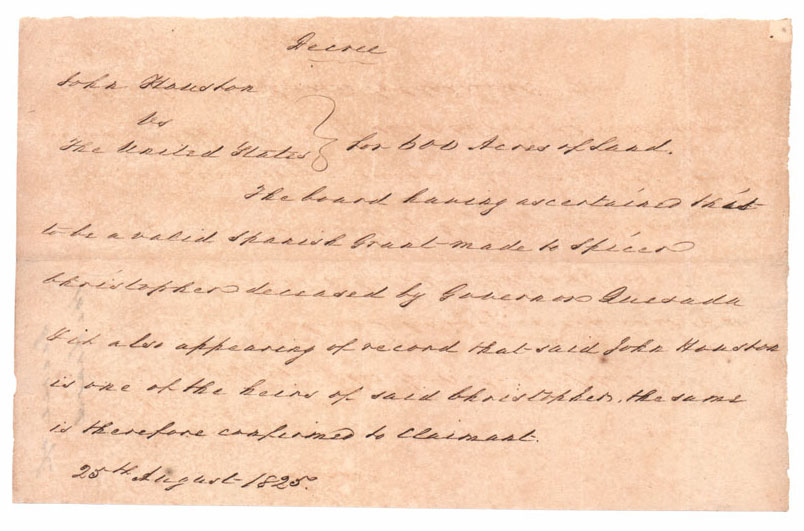 Decree
John Houston
vs
The United States } for 600 Acres of Land.
The board having ascertained this
to be a valid Spanish Grant made to Spicer
Christopher deceased by Governor Quesada
& it also appearing of record that said John Houston
is one of the heirs of said Christopher, the same
is therefore confirmed to Claimant.
25th August 1825.